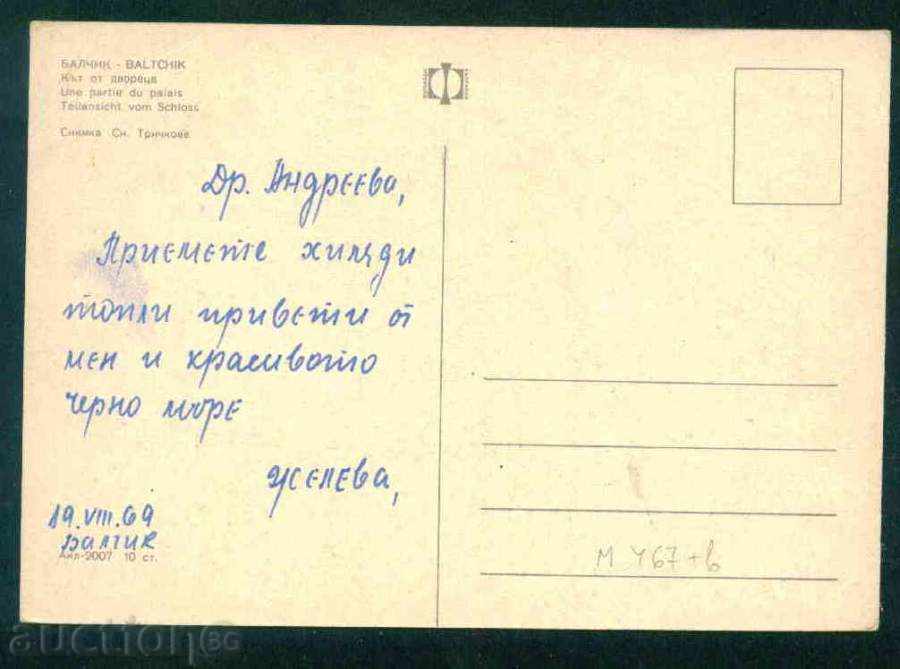 БАЛЧИК - BALTCHIK
Кът от двореца
Une partie du palais
Teilansicht vom Schloss
Снимка Сн. Тричкове
Др. Андреева,
Приемете хиляди
топли привети от
мен и красивото
Черно море
Желева,
19.VIII.69
Балчик
Акл-2007 10 ст.
М 467+в
auctionBG